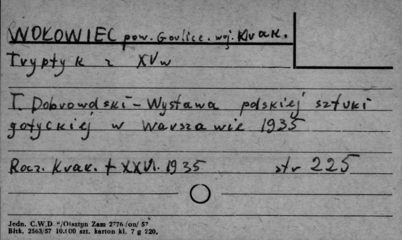 WOŁOWIEC pow. Gorlice. woj. Krak.
Tryptyk z XVw
T. Dobrowolski - Wystawa polskiej sztuki
gotyckiej w Warszawie 1935
Rocz. Krak. t XXVI. 1935 str 225
Jedn. C.W.D "/Olsztyn Zam 2776/on/ 57
Błtk. 2563/57 10.000 szt. karton kl. 7 g 220.